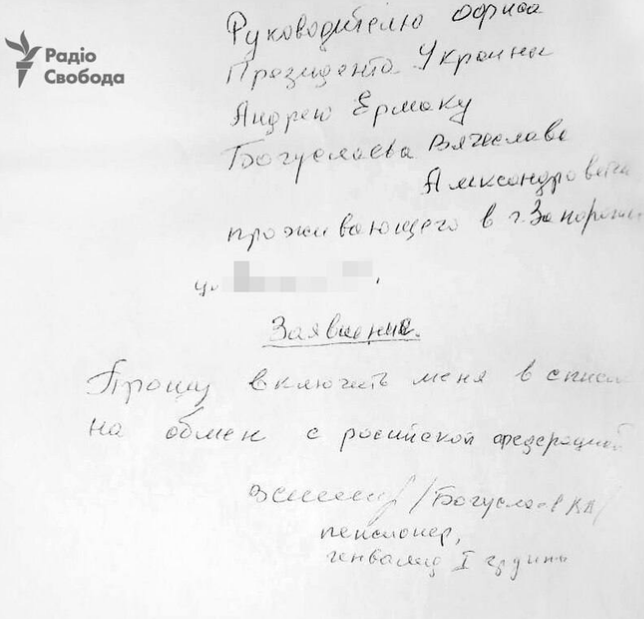 Радіо
Свобода
Руководителю офиса
Президента Украины
Андрею Ермаку
Богуслаева Вячеслава
Александровича
проживающего в г. Запорожье
ул
Заявление.
Прошу включить меня в список
на обмен с росийской федерацией
/Богуслаев ВА/
пенсионер,
инвалид I группы